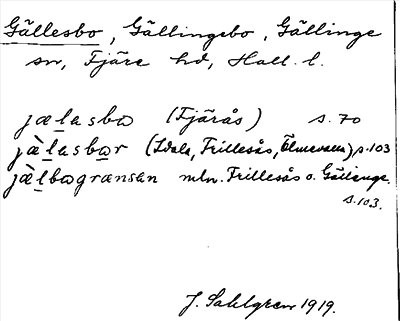 Gällesbo, Gällingebo, Gällinge
sn, Fjäre hd, Hall. l.
jælasbo (Fjärås) s. 70
jæ̀lasbor (Idala, Frillesås, Ölmevalla) s. 103
jæ̀lbogrænsan mln. Frillesås o. Gällinge.
s. 103.
J. Sahlgren 1919.